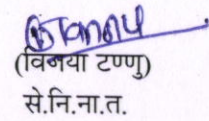 (विनया टण्णु)
से.नि.ना.त.